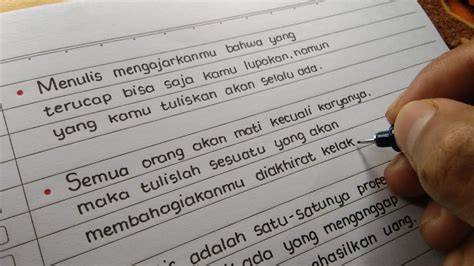 Menulis mengajarkanmu bahwa yang
terucap bisa saja kamu lupakan, namun
yang kamu tuliskan akan selalu ada.
Semua orang akan mati kecuali karyanya,
maka tulislah sesuatu yang akan
membahagiakanmu diakhirat kelak
is adalah satu-satunya profe
ada yang menganggap
ghasilkan uang.